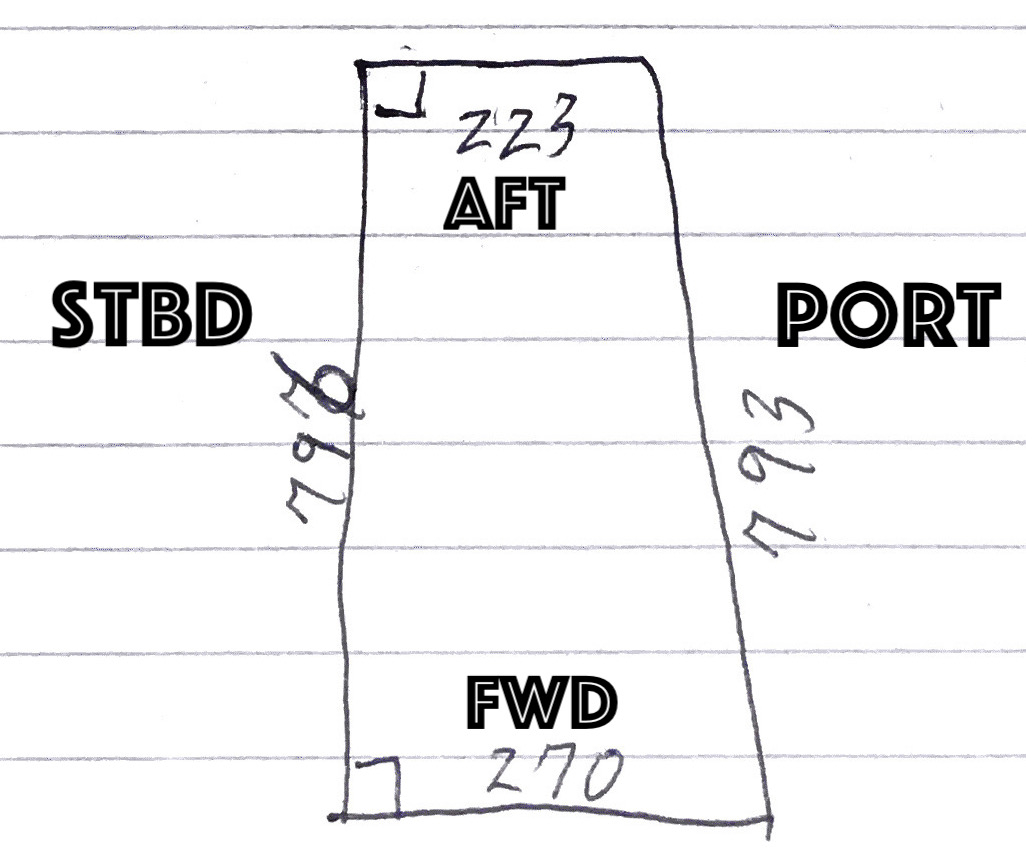 223
AFT
STBD
PORT
793
FWD
270